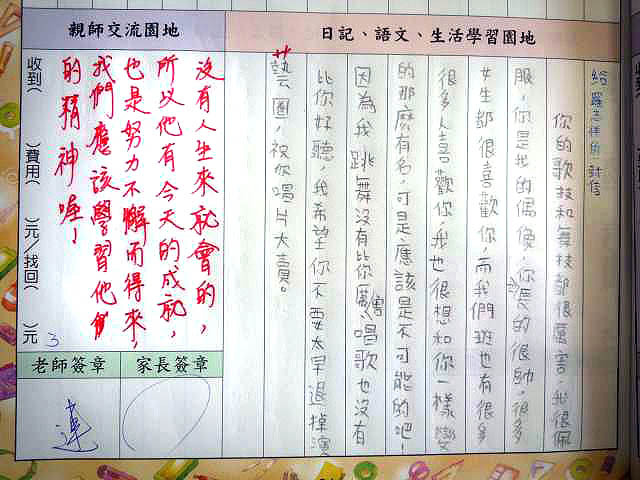 日記、語文、生活學習園地
給羅志祥的一封信
你的歌技和舞技都很厲害,我很佩
服,你是我的偶像,你長的很帥,很多
女生都很喜歡你,而我們班也有很多
很多人喜歡你,我也很想和你一樣變
的那麼有名,可是應該是不可能的吧!
因為我跳舞沒有比你厲害,唱歌也沒有
比你好聽,我希望你不要太早退掉演
藝圈,祝你唱片大賣。
親師交流園地
沒有人生來就會的,
所以他有今天的成就,
也是努力不懈而得來,
我們應該學習他
的精神喔!
收到( )費用( )元/找回( )元
3
老師簽章
家長簽章
蓮